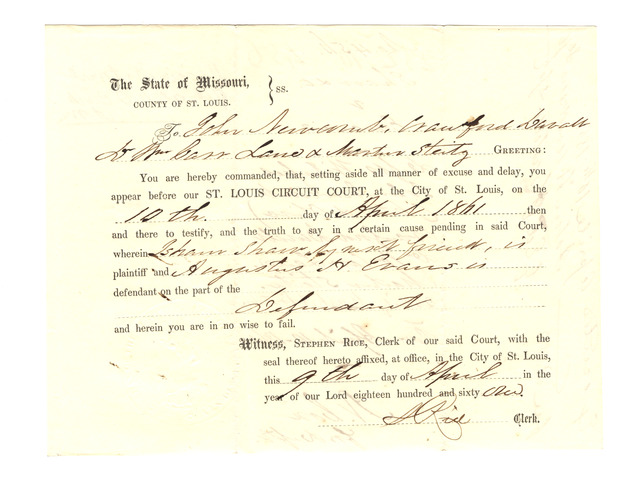 The State of Missouri, } ss.
COUNTY OF ST. LOUIS.
To John Newcomb, Crawford Duvall
Dr Wm Carr Lane & Martin Steitz GREETING:
You are hereby commanded, that, setting aside all manner of excuse and delay, you
appear before our ST. LOUIS CIRCUIT COURT, at the City of St. Louis, on the
10 th. day of April 1861 then
and there to testify, and the truth to say in a certain cause pending in said Court,
wherein Isham Shaw by next friend, is
plaintiff and Augustus H Evans is
defendant on the part of the
Defendant
and herein you are in no wise to fail.
Witness, STEPHEN RICE, Clerk of our said Court, with the
seal thereof hereto affixed, at office, in the City of St. Louis,
this 9 th day of April in the
year of our Lord eighteen hundred and sixty one.
S Rice Clerk.